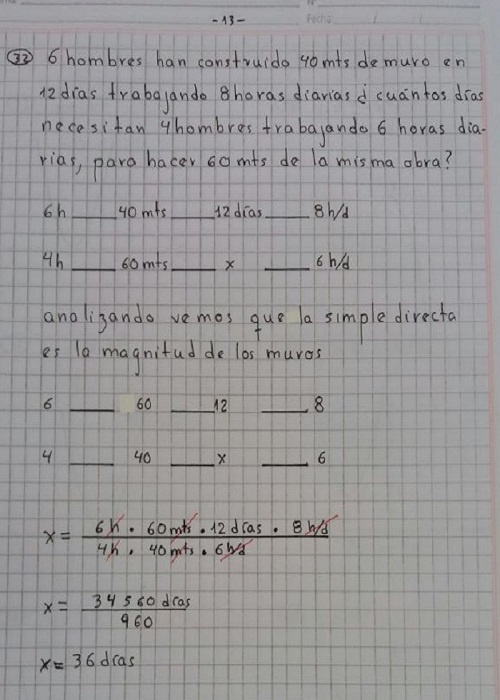 - 13 -
Fecha
33 6 hombres han construido 40 mts de muro en
12 días trabajando 8 horas diarias ¿ cuántos días
necesitan 4 hombres trabajando 6 horas dia-
rias, para hacer 60 mts de la misma obra?
6h ___ 40 mts ___ 12 días ___ 8 h/d
4h ___ 60 mts ___ x ___ 6 h/d
analizando vemos que la simple directa
es la magnitud de los muros
6 ___ 60 ___ 12 ___ 8
4 ___ 40 ___ x ___ 6
x = 6h . 60 mts . 12 días . 8 h/d
4h . 40 mts . 6 h/d
x = 34560 días
960
x = 36 días